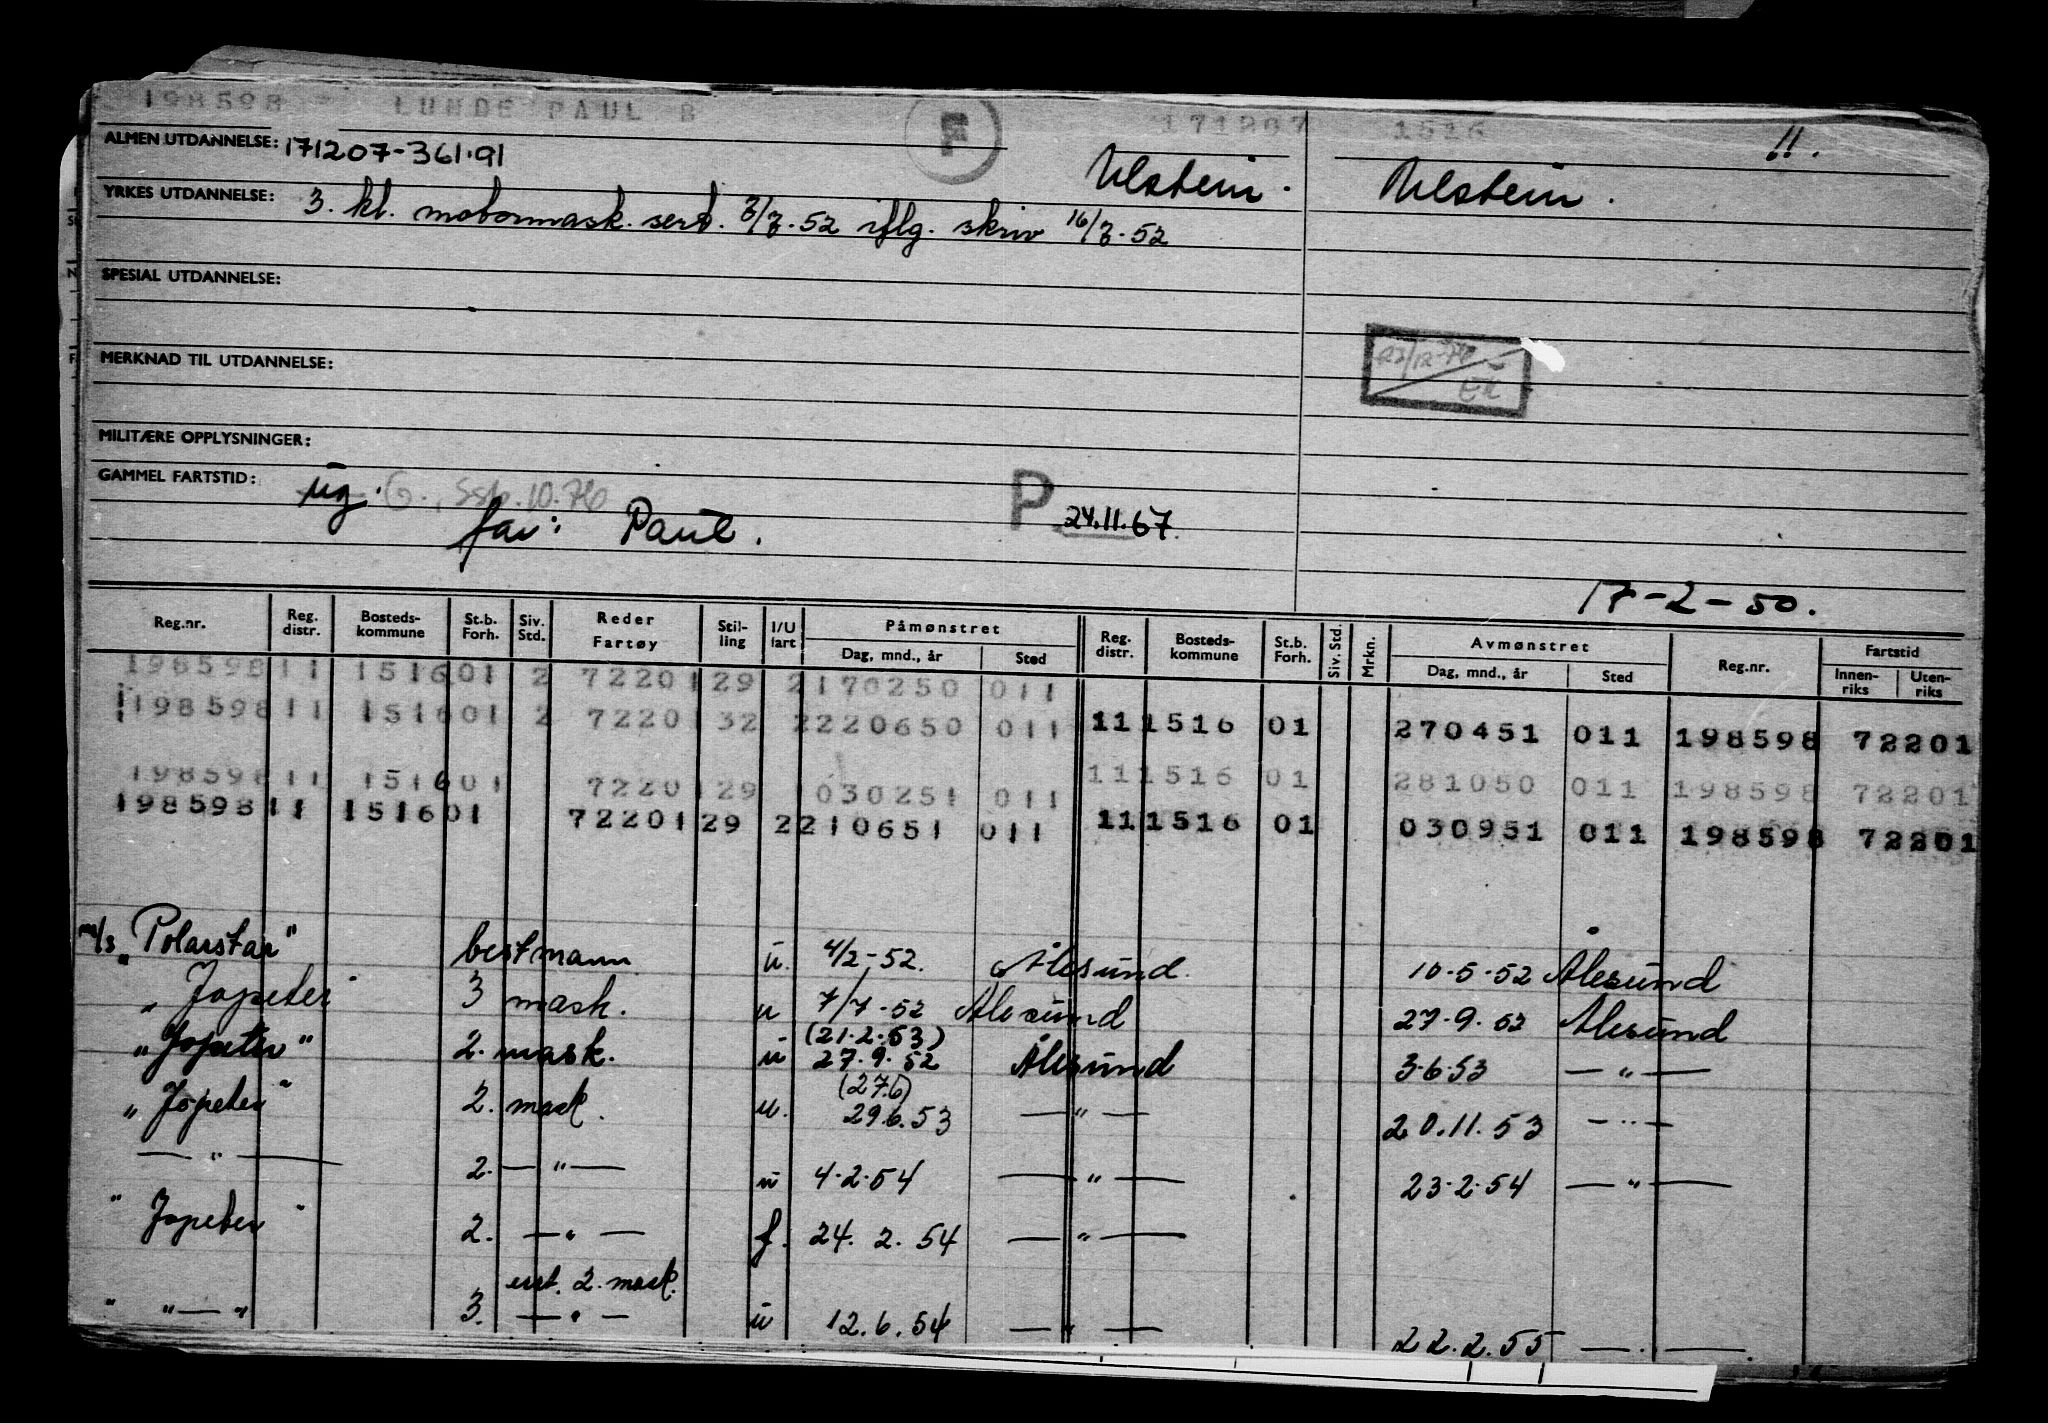 198598 - LUNDE PAUL B F 171207 1516 11.
ALMEN UTDANNELSE: 171207-361.91
Ulstein. Ulstein.
YRKES UTDANNELSE: 3. kl. motormask. sert. 3/7.52 iflg. skriv 16/7.52
SPESIAL UTDANNELSE:
MERKNAD TIL UTDANNELSE:
MILITÆRE OPPLYSNINGER:
GAMMEL FARTSTID: ug. G.
far: Paul. P 24.11.67.
17-2-50.
Reg.nr. Reg. distr. Bosteds-kommune St.b. Forh. Siv. Std. Reder Fartøy Stil-ling I/U fart Påmønstret Dag, mnd., år Sted Reg. distr. Bosteds-kommune St.b. Forh. Siv. Std. Mrkn. Avmønstret Dag, mnd., år Sted Reg.nr. Fartstid Innen-riks Uten-riks
198598 11 1516 01 2 72201 29 2 170250 011
198598 11 1516 01 2 72201 32 2 220650 011 11 1516 01 270451 011 198598 72201
198598 11 1516 01 72201 29 030251 011 11 1516 01 281050 011 198598 72201
198598 11 1516 01 72201 29 2 210651 011 11 1516 01 030951 011 198598 72201
m/s "Polarstar" bestmann u. 4/2-52. Ålesund. 10-5-52 Ålesund
" Jopeter 3 mask. u 7/7-52 Ålesund 27.9.52 Ålesund
(21.2.53)
"Jopeter" 2. mask. u 27.9.52 Ålesund 3.6.53 — " —
(27.6)
"Jopeter" 2. mask. u. 29.6.53 — " — 20.11.53 — " —
— " — 2. — " — u 4.2.54 — " — 23.2.54 — " —
" Jopeter " 2. — " — f. 24.2.54 — " —
2. mask.
" " — " 3. — " — u 12.6.54 — " — 22.2.55 — " —